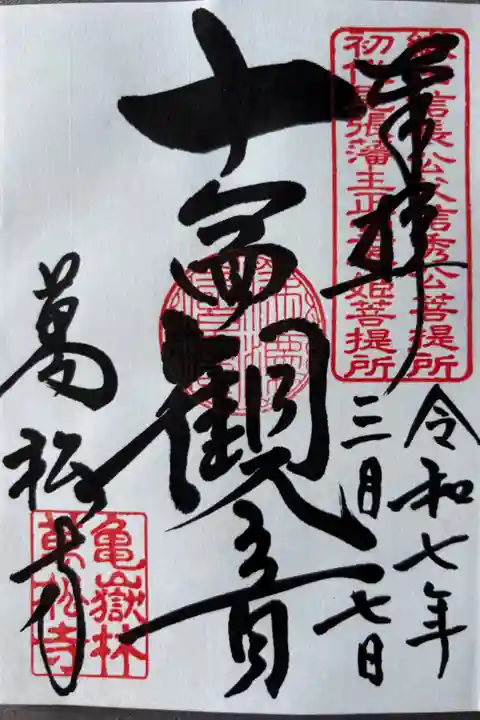 奉拝
織田信長公父信秀公菩提所
初代尾張藩主正室春姫菩提所
令和七年
三月一七日
十一面観音
萬松寺
亀嶽林
萬松寺